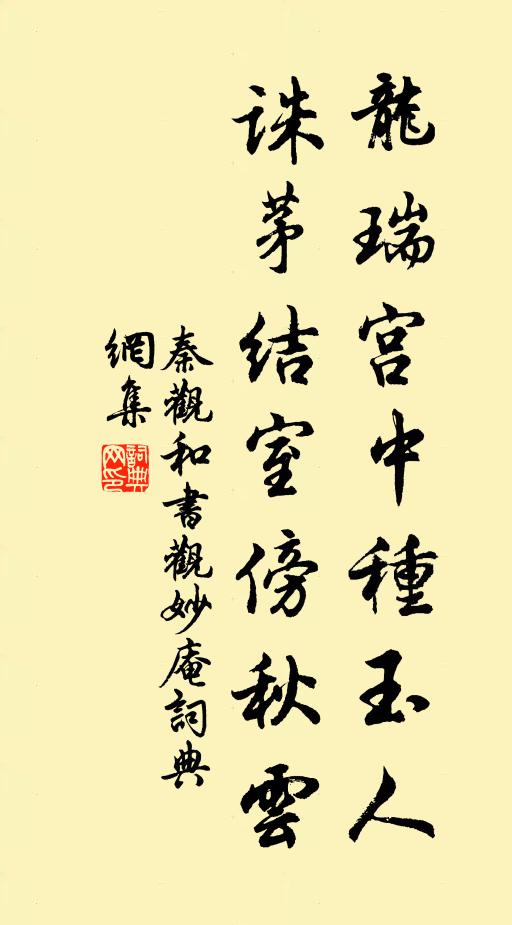 龍瑞宮中種玉人
誅茅結室傍秋雲
秦觀和書觀妙庵詞典
網集
詞典
网印